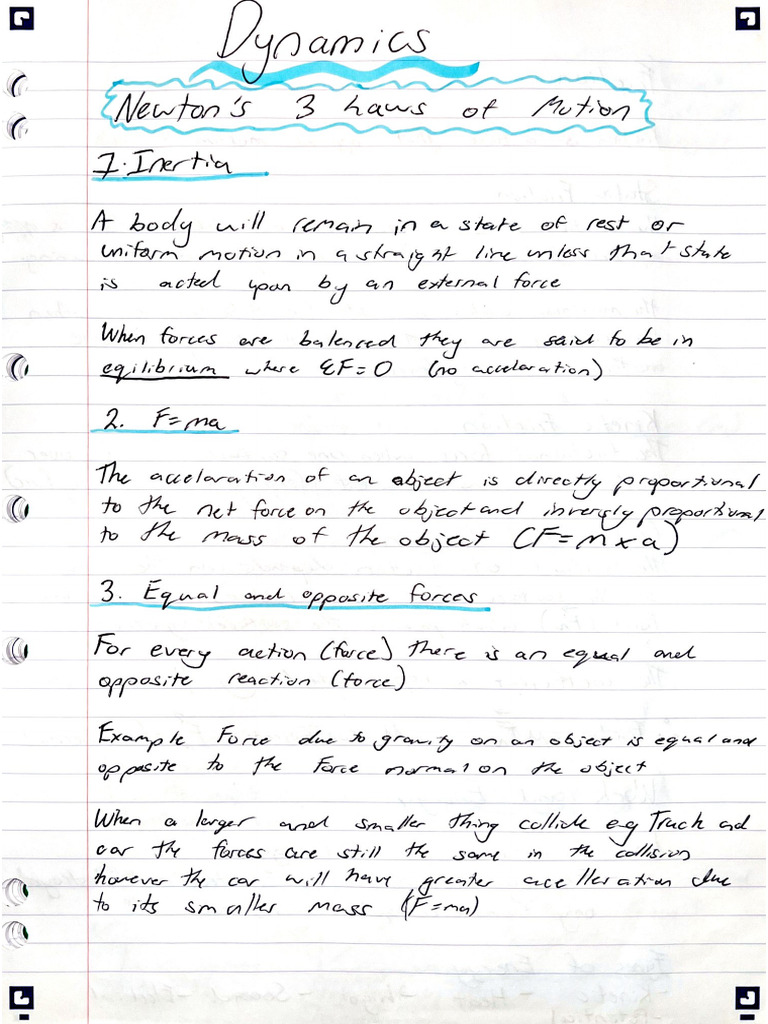 Dynamics
Newton's 3 Laws of Motion
1. Inertia
A body will remain in a state of rest or
uniform motion in a straight line unless that state
is acted upon by an external force
When forces are balenced they are said to be in
eqilibrium where ΣF=0 (no accelaration)
2. F=ma
The accelaration of an object is directly proportional
to the net force on the object and inversly proportional
to the mass of the object (F=m×a)
3. Equal and opposite forces
For every action (force) there is an equal and
opposite reaction (force)
Example Force due to gravity on an object is equal and
opposite to the Force normal on the object
When a larger and smaller thing collide e.g Truck and
car the forces are still the same in the collision
however the car will have greater acelleration due
to its smaller mass (F=ma)